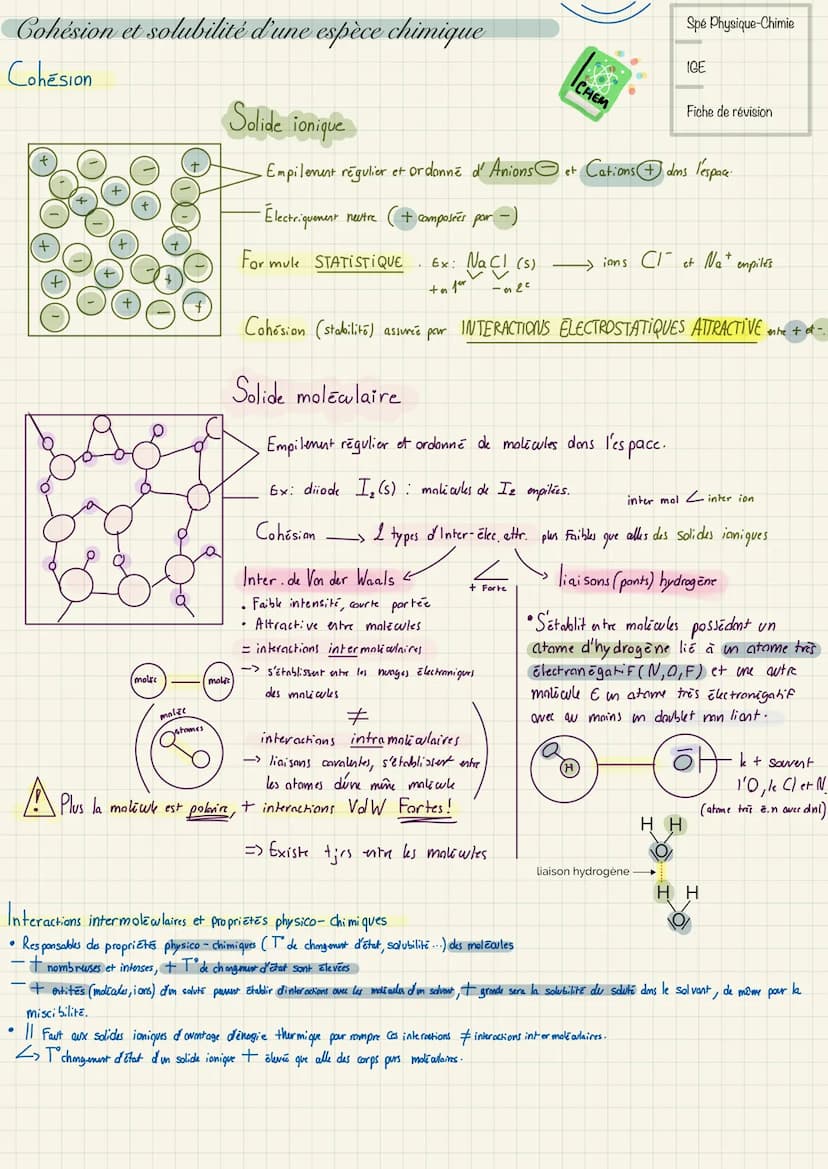 Cohésion et solubilité d'une espèce chimique
Spé Physique-Chimie
1GE
Fiche de révision
CHEM
Cohésion
Solide ionique
Empilement régulier et ordonné d'Anions ⊖ et Cations ⊕ dans l'espace.
Électriquement neutre (+ composés par -)
Formule STATISTIQUE. Ex: NaCl (s) → ions Cl⁻ et Na⁺ empilés
+ en 1er - en 2e
Cohésion (stabilité) assurée par INTERACTIONS ÉLECTROSTATIQUES ATTRACTIVE entre + et -.
Solide moléculaire
Empilement régulier et ordonné de molécules dans l'espace.
Ex: diiode I₂(s) : molécules de I₂ empilées.
inter mol ∠ inter ion
Cohésion → 2 types d'Inter-élec. attr. plus faibles que celles des solides ioniques
Inter. de Van der Waals
∠
+ Forte
liaisons (ponts) hydrogène
• Faible intensité, courte portée
• Attractive entre molécules
= interactions intermoléculaires
–> s'établissent entre les nuages électroniques
des molécules
moléc
moléc
≠
moléc
atomes
interactions intramoléculaires
–> liaisons covalentes, s'établissent entre
les atomes d'une même molécule
⚠ Plus la molécule est polaire, + interactions VdW Fortes!
=> Existe tjrs entre les molécules
• S'établit entre molécules possédant un
atome d'hydrogène lié à un atome très
électronégatif (N,O,F) et une autre
molécule € un atome très électronégatif
avec au moins un doublet non liant.
H
O
le + souvent
l'O, le Cl et N
(atome très é.n avec dnl)
H H
O
liaison hydrogène
H H
O
Interactions intermoléculaires et propriétés physico-chimiques
• Responsables de propriétés physico-chimiques (T° de changement d'état, solubilité...) des molécules
– + nombreuses et intenses, + T° de changement d'état sont élevées
– + entités (molécules, ions) d'un soluté peuvent établir d'interactions avec les molécules d'un solvant, + grande sera la solubilité du soluté dans le solvant, de même pour la
miscibilité.
• Il Faut aux solides ioniques d'avantage d'énergie thermique pour rompre ces interactions ≠ interactions intermoléculaires.
↳ T° changement d'état d'un solide ionique + élevé que celle des corps purs moléculaires.